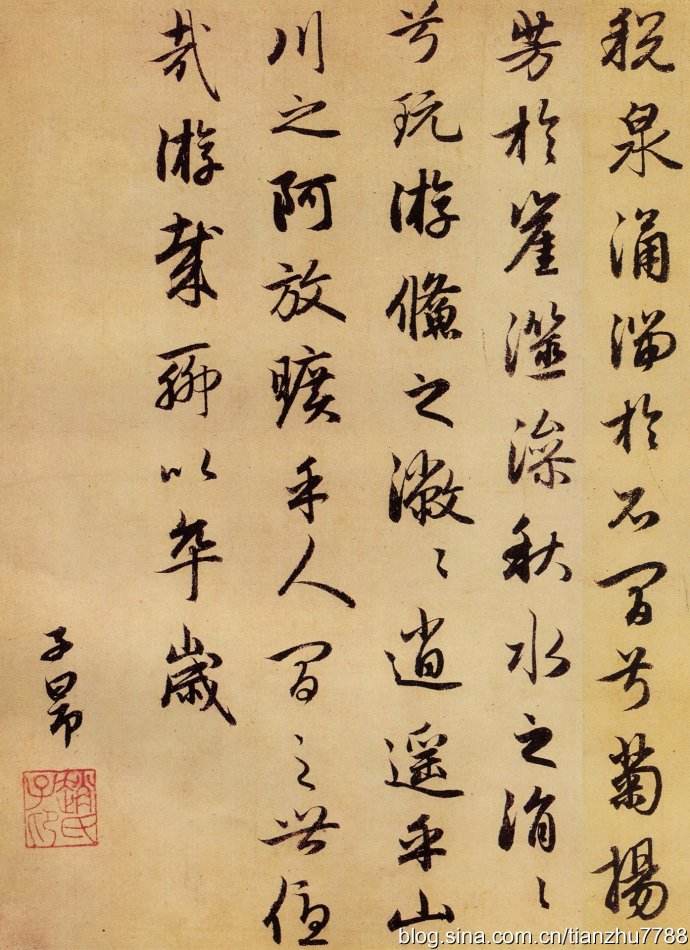 税泉涌湍於石間兮菊揚
芳於崖澨澡秋水之涓〻
兮玩游儵之潎〻逍遥乎山
川之阿放曠乎人間之世優
哉游哉聊以卒歲
子昂
趙氏子昂
blog.sina.com.cn/tianzhu7788